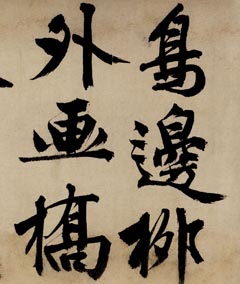 島邊柳
外画橋